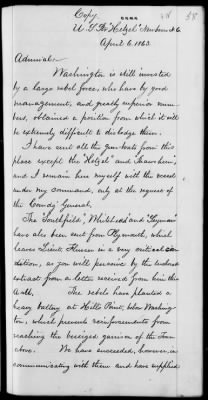 Copy
U.S. Str Hetzel Newbern N.C.
April 6, 1863.
Admiral
Washington is still invested
by a large rebel force, who have by good
management, and greatly superior num-
bers, obtained a position from which it will
be extremely difficult to dislodge them.
I have sent all the gun-boats from this
place except the "Hetzel" and "Shawsheen",
and I remain here myself with the vessels
under my command, only at the request of
the Comdg General.
The "Southfield," "Whitehead" and "Seymour"
have also been sent from Plymouth, which
leaves Lieut. Flusser in a very critical con-
dition, as you will perceive by the enclosed
extract from a letter received from him this
The rebels have planted a
heavy battery at Hill's Point, below Washing-
ton, which prevents reinforcements from
reaching the besieged garrison of the Town
above. We have succeeded, however, in
communicating with them and have supplied